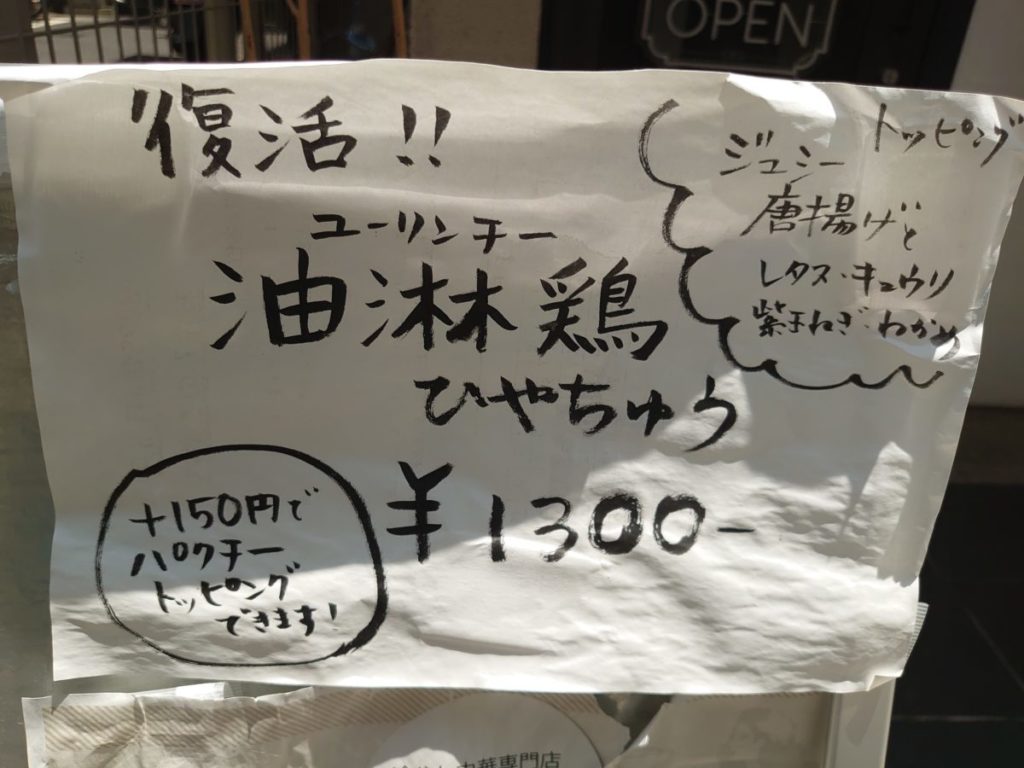 OPEN
復活!!
ユーリンチー
油淋鶏
ひやちゅう
¥1300-
トッピング
ジュシー
唐揚げと
レタス・キュウリ
紫玉ねぎ・わかめ
+150円で
パクチー
トッピング
できます!
中華専門店